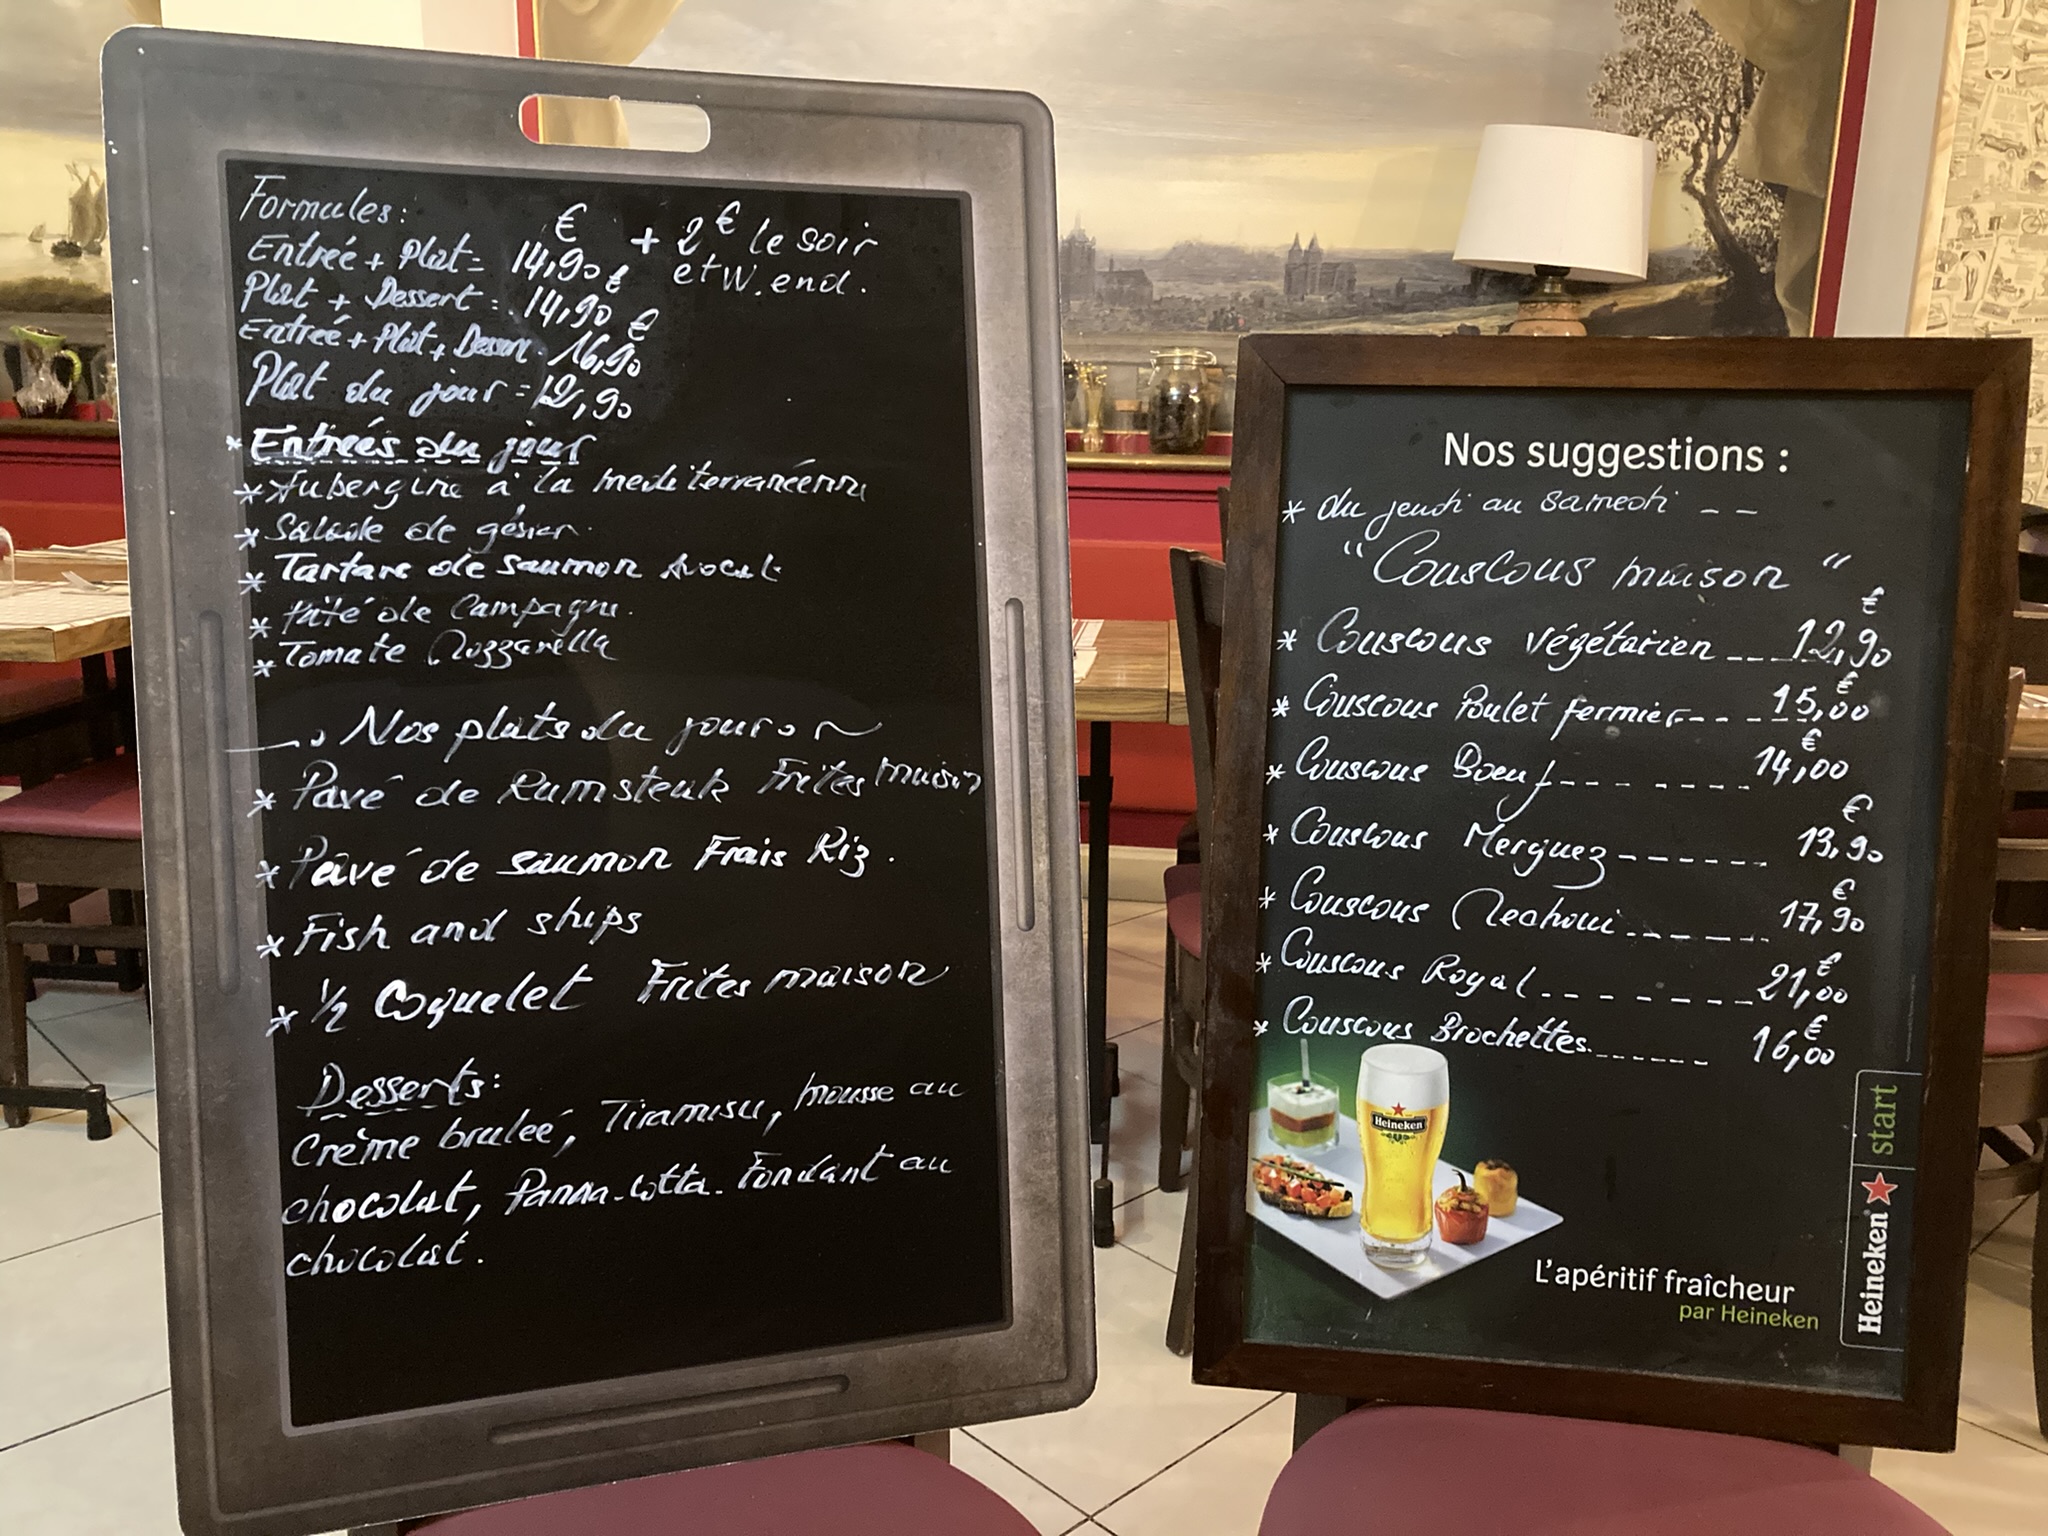 Formules:
Entrée + Plat = 14,90 € + 2 € le soir
et W.end.
Plat + Dessert = 14,90 €
Entreé + Plat + Dessert 16,90 €
Plat du jour = 12,90
* Entreés du jour
* Aubergine à la mediterranéenne
* Salade de gésier.
* Tartare de saumon Avocat
* Pâté de Campagne.
* Tomate Mozzarella
Nos plats du jour
* Pavé de Rumsteak Frites maison
* Pavé de saumon Frais Riz.
* Fish and ships
* 1/2 Coquelet Frites maison
Desserts:
Crème bruleé, Tiramisu, mousse au
chocolat, Panna-cotta - Fondant au
chocolat.
Nos suggestions :
* du jeudi au samedi --
"Couscous maison"
* Couscous végétarien ------ 12,90 €
* Couscous Poulet fermier --- 15,00 €
* Couscous Boeuf ------- 14,00 €
* Couscous Merguez ------ 13,90 €
* Couscous Mechoui ------ 17,90 €
* Couscous Royal ------- 21,00 €
* Couscous Brochettes ------ 16,00 €
Heineken
L'apéritif fraîcheur
par Heineken
Heineken start